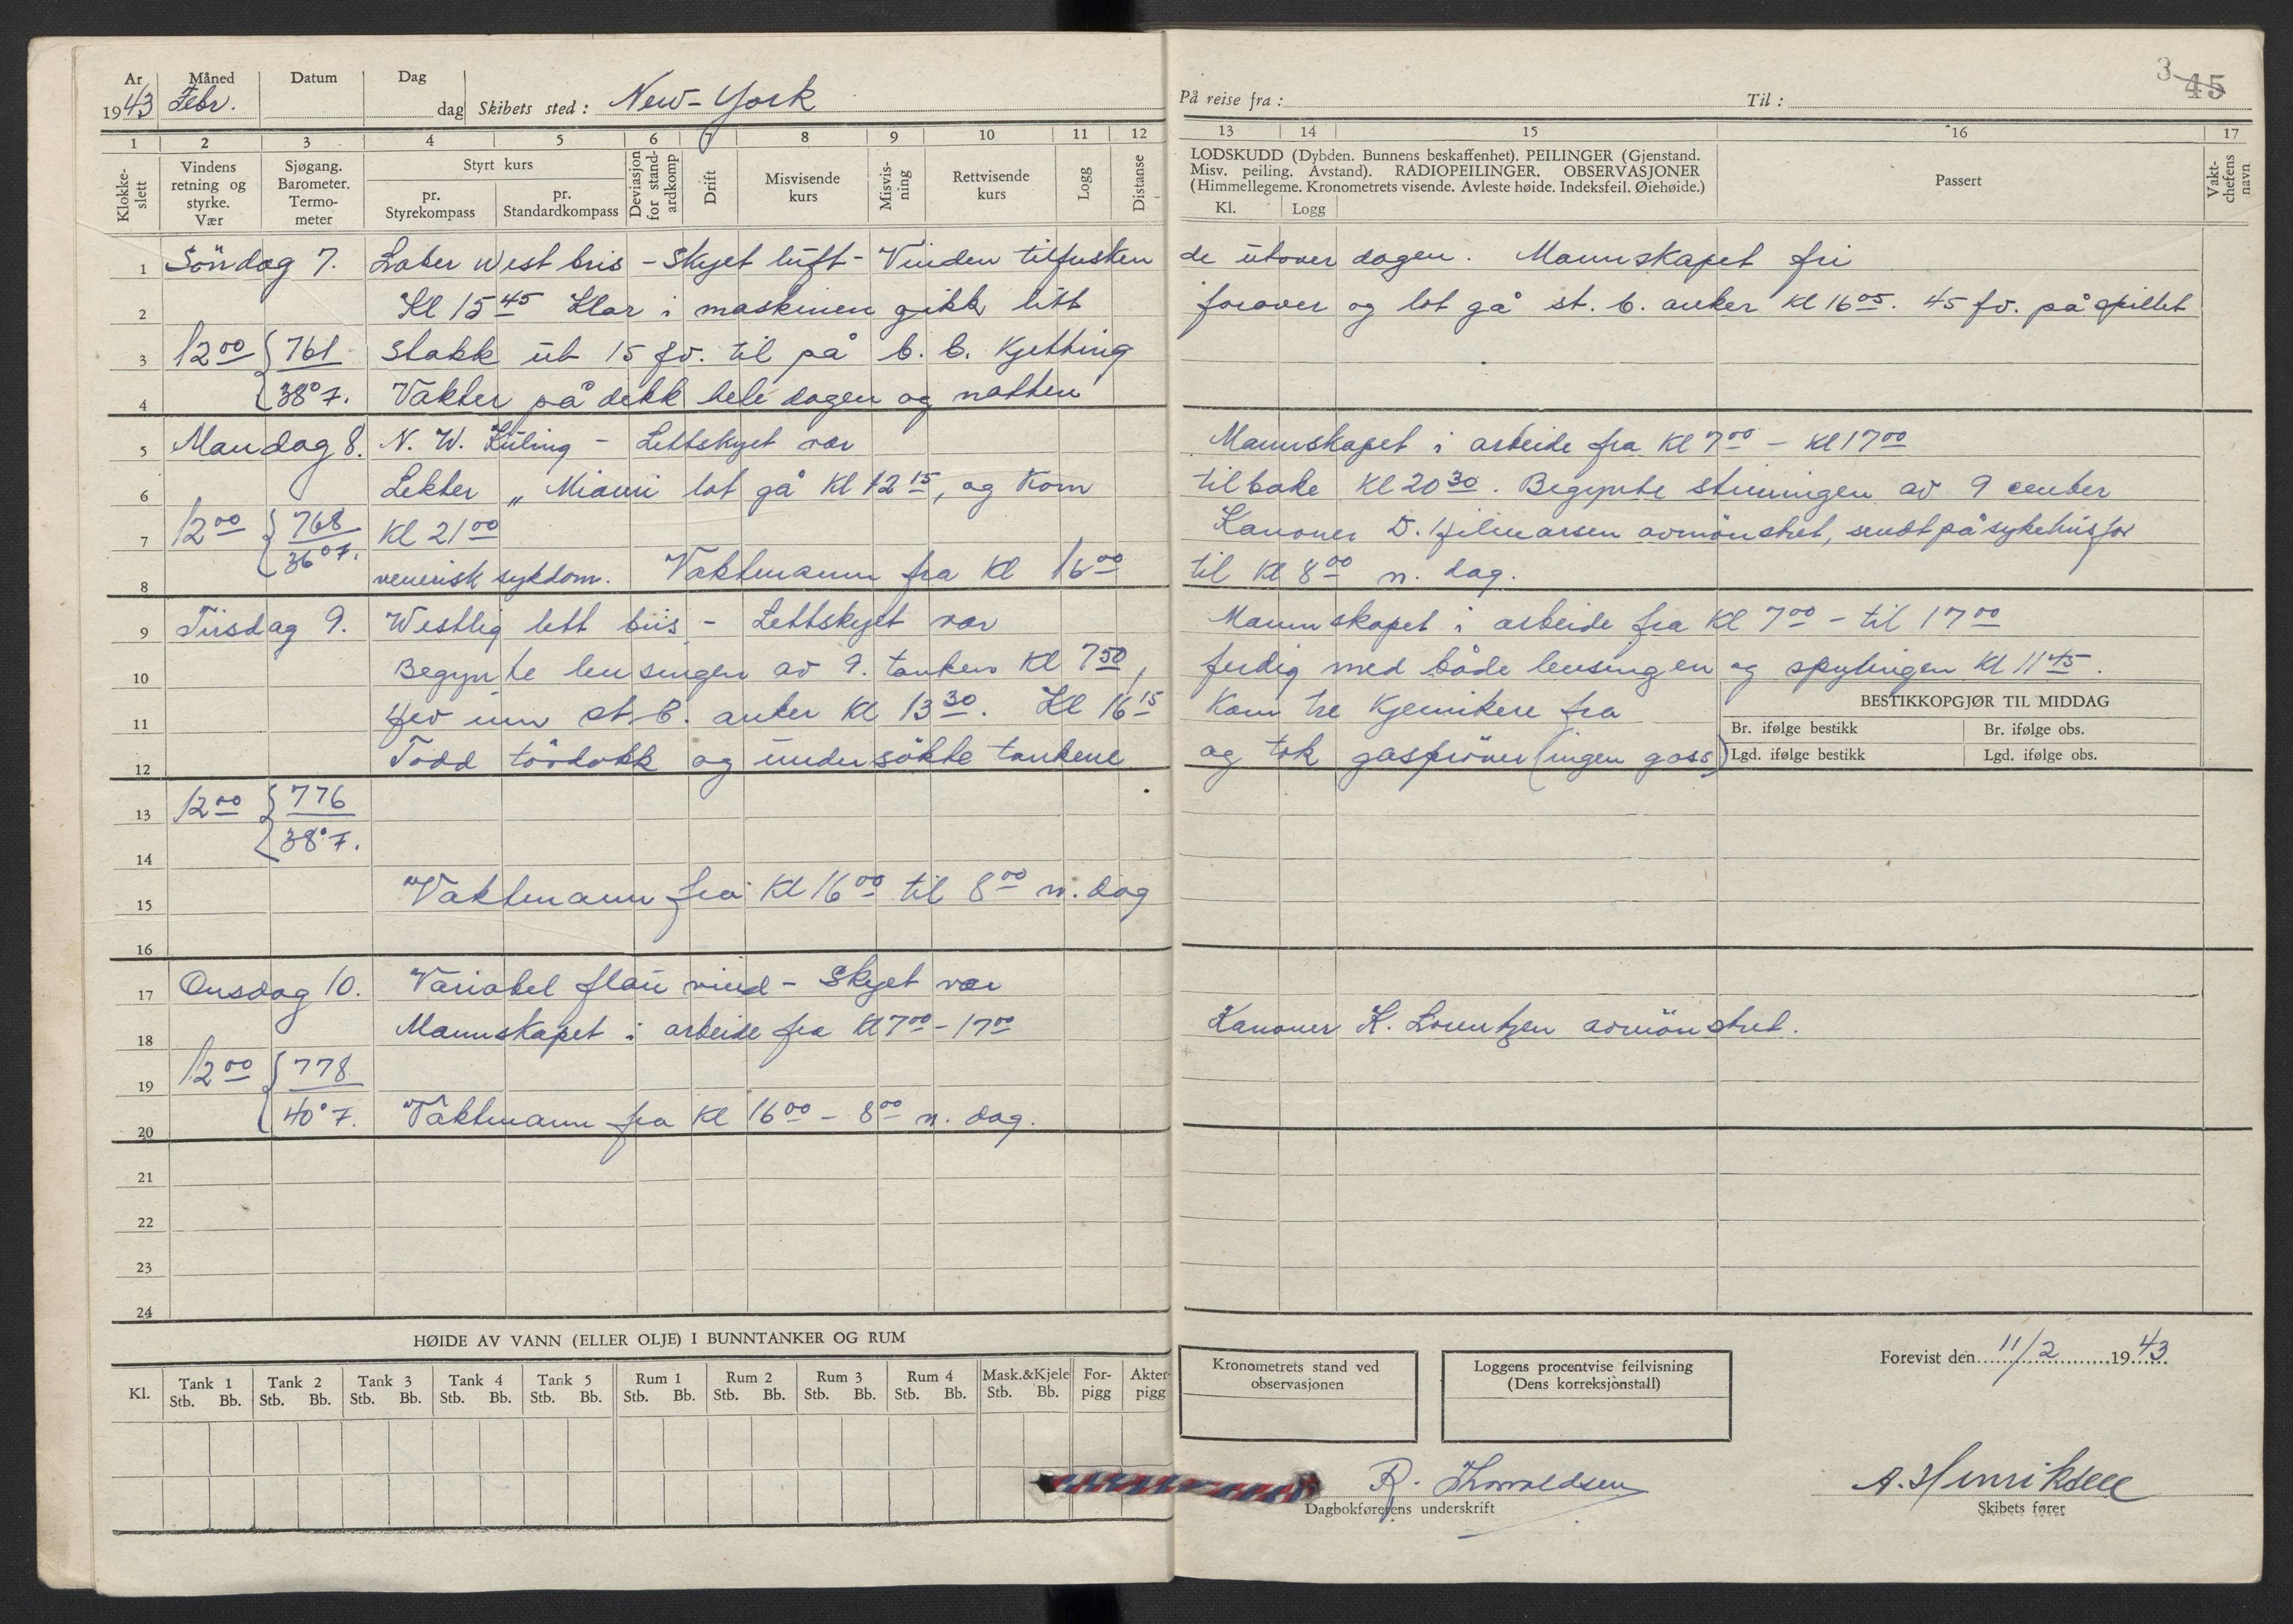 3 45
Ar Måned Datum Dag
1943 Febr. dag Skibets sted: New-York På reise fra: Til:
1 2 3 4 5 6 7 8 9 10 11 12 13 14 15 16 17
Klokkeslett
Vindens retning og styrke. Vær
Sjøgang. Barometer. Termometer
Styrt kurs
pr. Styrekompass
pr. Standardkompass
Deviasjon for standardkomp
Drift
Misvisende kurs
Misvisning
Rettvisende kurs
Logg
Distanse
LODSKUDD (Dybden. Bunnens beskaffenhet). PEILINGER (Gjenstand.
Misv. peiling. Avstand). RADIOPEILINGER. OBSERVASJONER
(Himmellegeme. Kronometrets visende. Avleste høide. Indeksfeil. Øiehøide.)
Kl. Logg
Passert
Vaktchefens navn
1 Söndag 7. Laber West bris - Skyet luft - Vinden tilfrisken de utover dagen. Mannskapet fri
2 Kl 15 45 Klar i maskinen gikk litt forover og lot gå st. b. anker kl 16 05. 45 fv. på spillet
3 12 00 761 stakk ut 15 fv. til på b. b. Kjetting
4 38° F. Vakter på dekk hele dagen og natten
5 Mandag 8. N. W. Kuling - Lettskyet vær Mannskapet i arbeide fra Kl 7 00 - kl 17 00
6 Lekter „Miami lot gå Kl 12 15, og kom tilbake Kl 20 30. Begynte stimingen av 9 center
7 12 00 768 Kl 21 00 Kanoner D. Hjelmarsen avmönstret, sendt på sykehus for
8 36° F. venerisk sykdom. Vaktmann fra Kl 16 00 til Kl 8 00 n. dag.
9 Tirsdag 9. Westlig lett bris - Lettskyet vær Mannskapet i arbeide fra Kl 7 00 - til 17 00
10 Begynte lensingen av 9. tanken Kl 7 50, ferdig med både lensingen og spylingen Kl 11 45.
11 Hev inn st. B. anker Kl 13 30. Kl 16 15 Kom tre Kjemikere fra
12 Todd tördokk og undersökte tankene og tok gaspröver (ingen gass)
BESTIKKOPGJØR TIL MIDDAG
Br. ifølge bestikk Br. ifølge obs.
Lgd. ifølge bestikk Lgd. ifølge obs.
13 12 00 776
14 38° F.
15 Vaktmann fra Kl 16 00 til 8 00 n. dag
16
17 Onsdag 10. Variabel flau vind - Skyet vær
18 Mannskapet i arbeide fra Kl 7 00 - 17 00 Kanoner K. Lorentzen avmönstret.
19 12 00 778
20 40° F. Vaktmann fra Kl 16 00 - 8 00 n. dag.
21
22
23
24
HØIDE AV VANN (ELLER OLJE) I BUNNTANKER OG RUM
Kl. Tank 1 Tank 2 Tank 3 Tank 4 Tank 5 Rum 1 Rum 2 Rum 3 Rum 4 Mask.&Kjele For-pigg Akter-pigg
Stb. Bb. Stb. Bb. Stb. Bb. Stb. Bb. Stb. Bb. Stb. Bb. Stb. Bb. Stb. Bb. Stb. Bb. Stb. Bb.
Kronometrets stand ved observasjonen
Loggens procentvise feilvisning
(Dens korreksjonstall)
Forevist den 11/2 1943
R. Thoraldsen
Dagbokførerens underskrift
A. Henriksen
Skibets fører